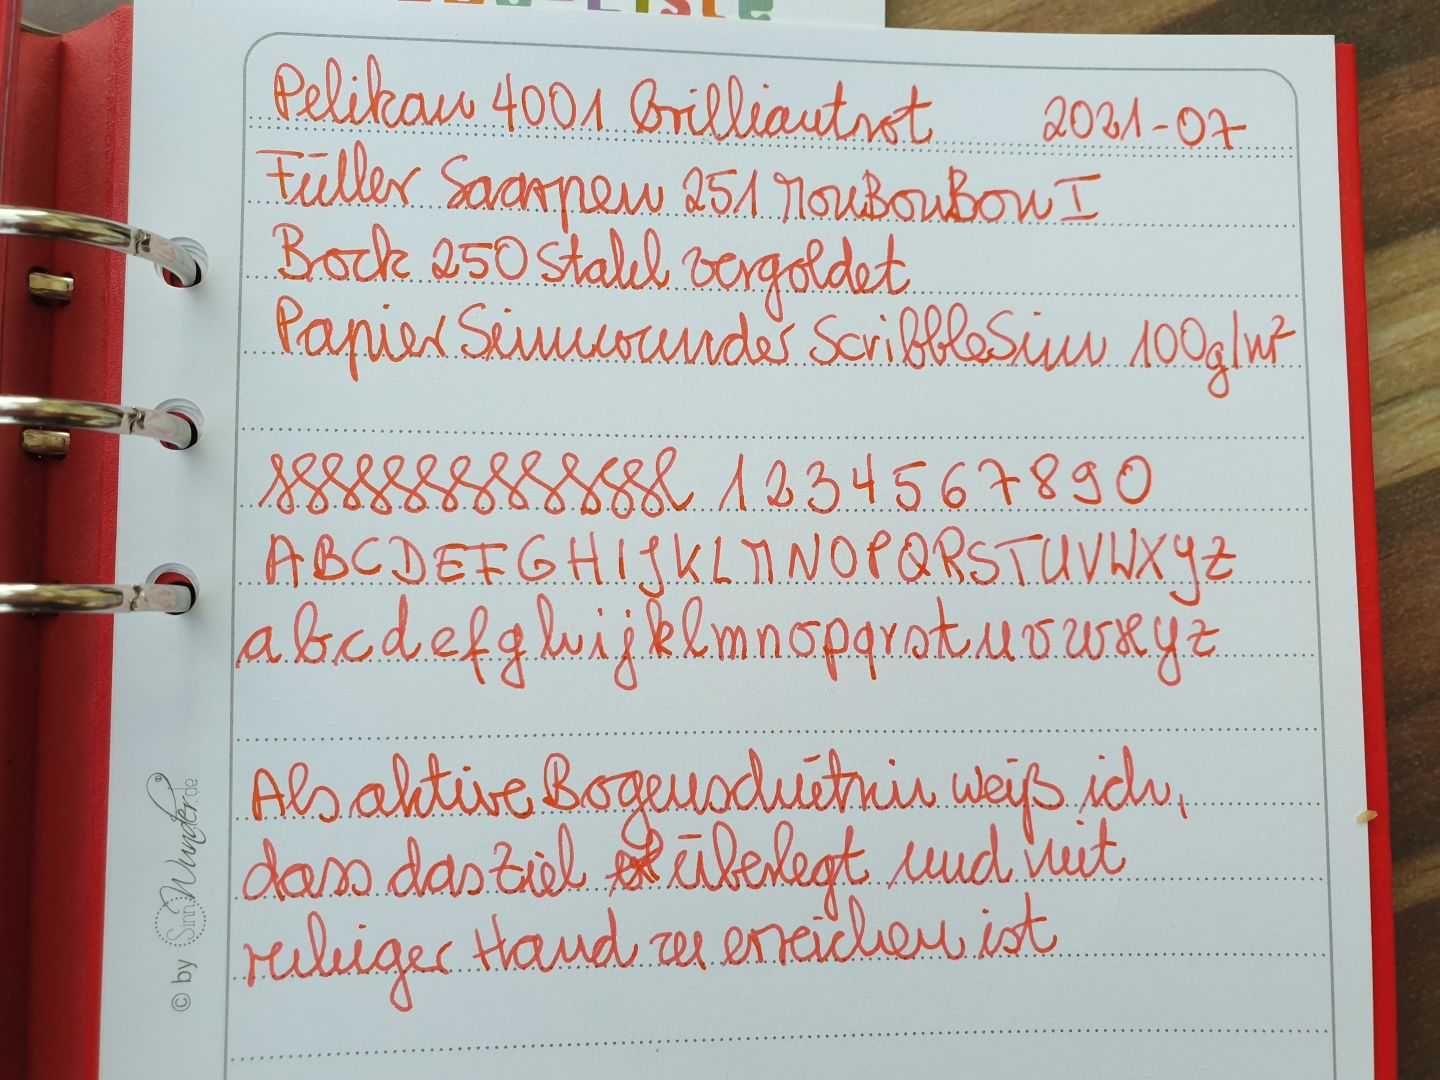 Pelikan 4001 Brilliantrot 2021-07
Füller Saarpen 251 MonBonBon I
Bock 250 Stahl vergoldet
Papier Sinnwunder ScribbleSinn 100g/m²
1 2 3 4 5 6 7 8 9 0
A B C D E F G H I J K L M N O P Q R S T U V W X Y Z
a b c d e f g h i j k l m n o p q r s t u v w x y z
Als aktive Bogenschützin weiß ich,
dass das Ziel überlegt und mit
ruhiger Hand zu erreichen ist
© by SinnWunder.de